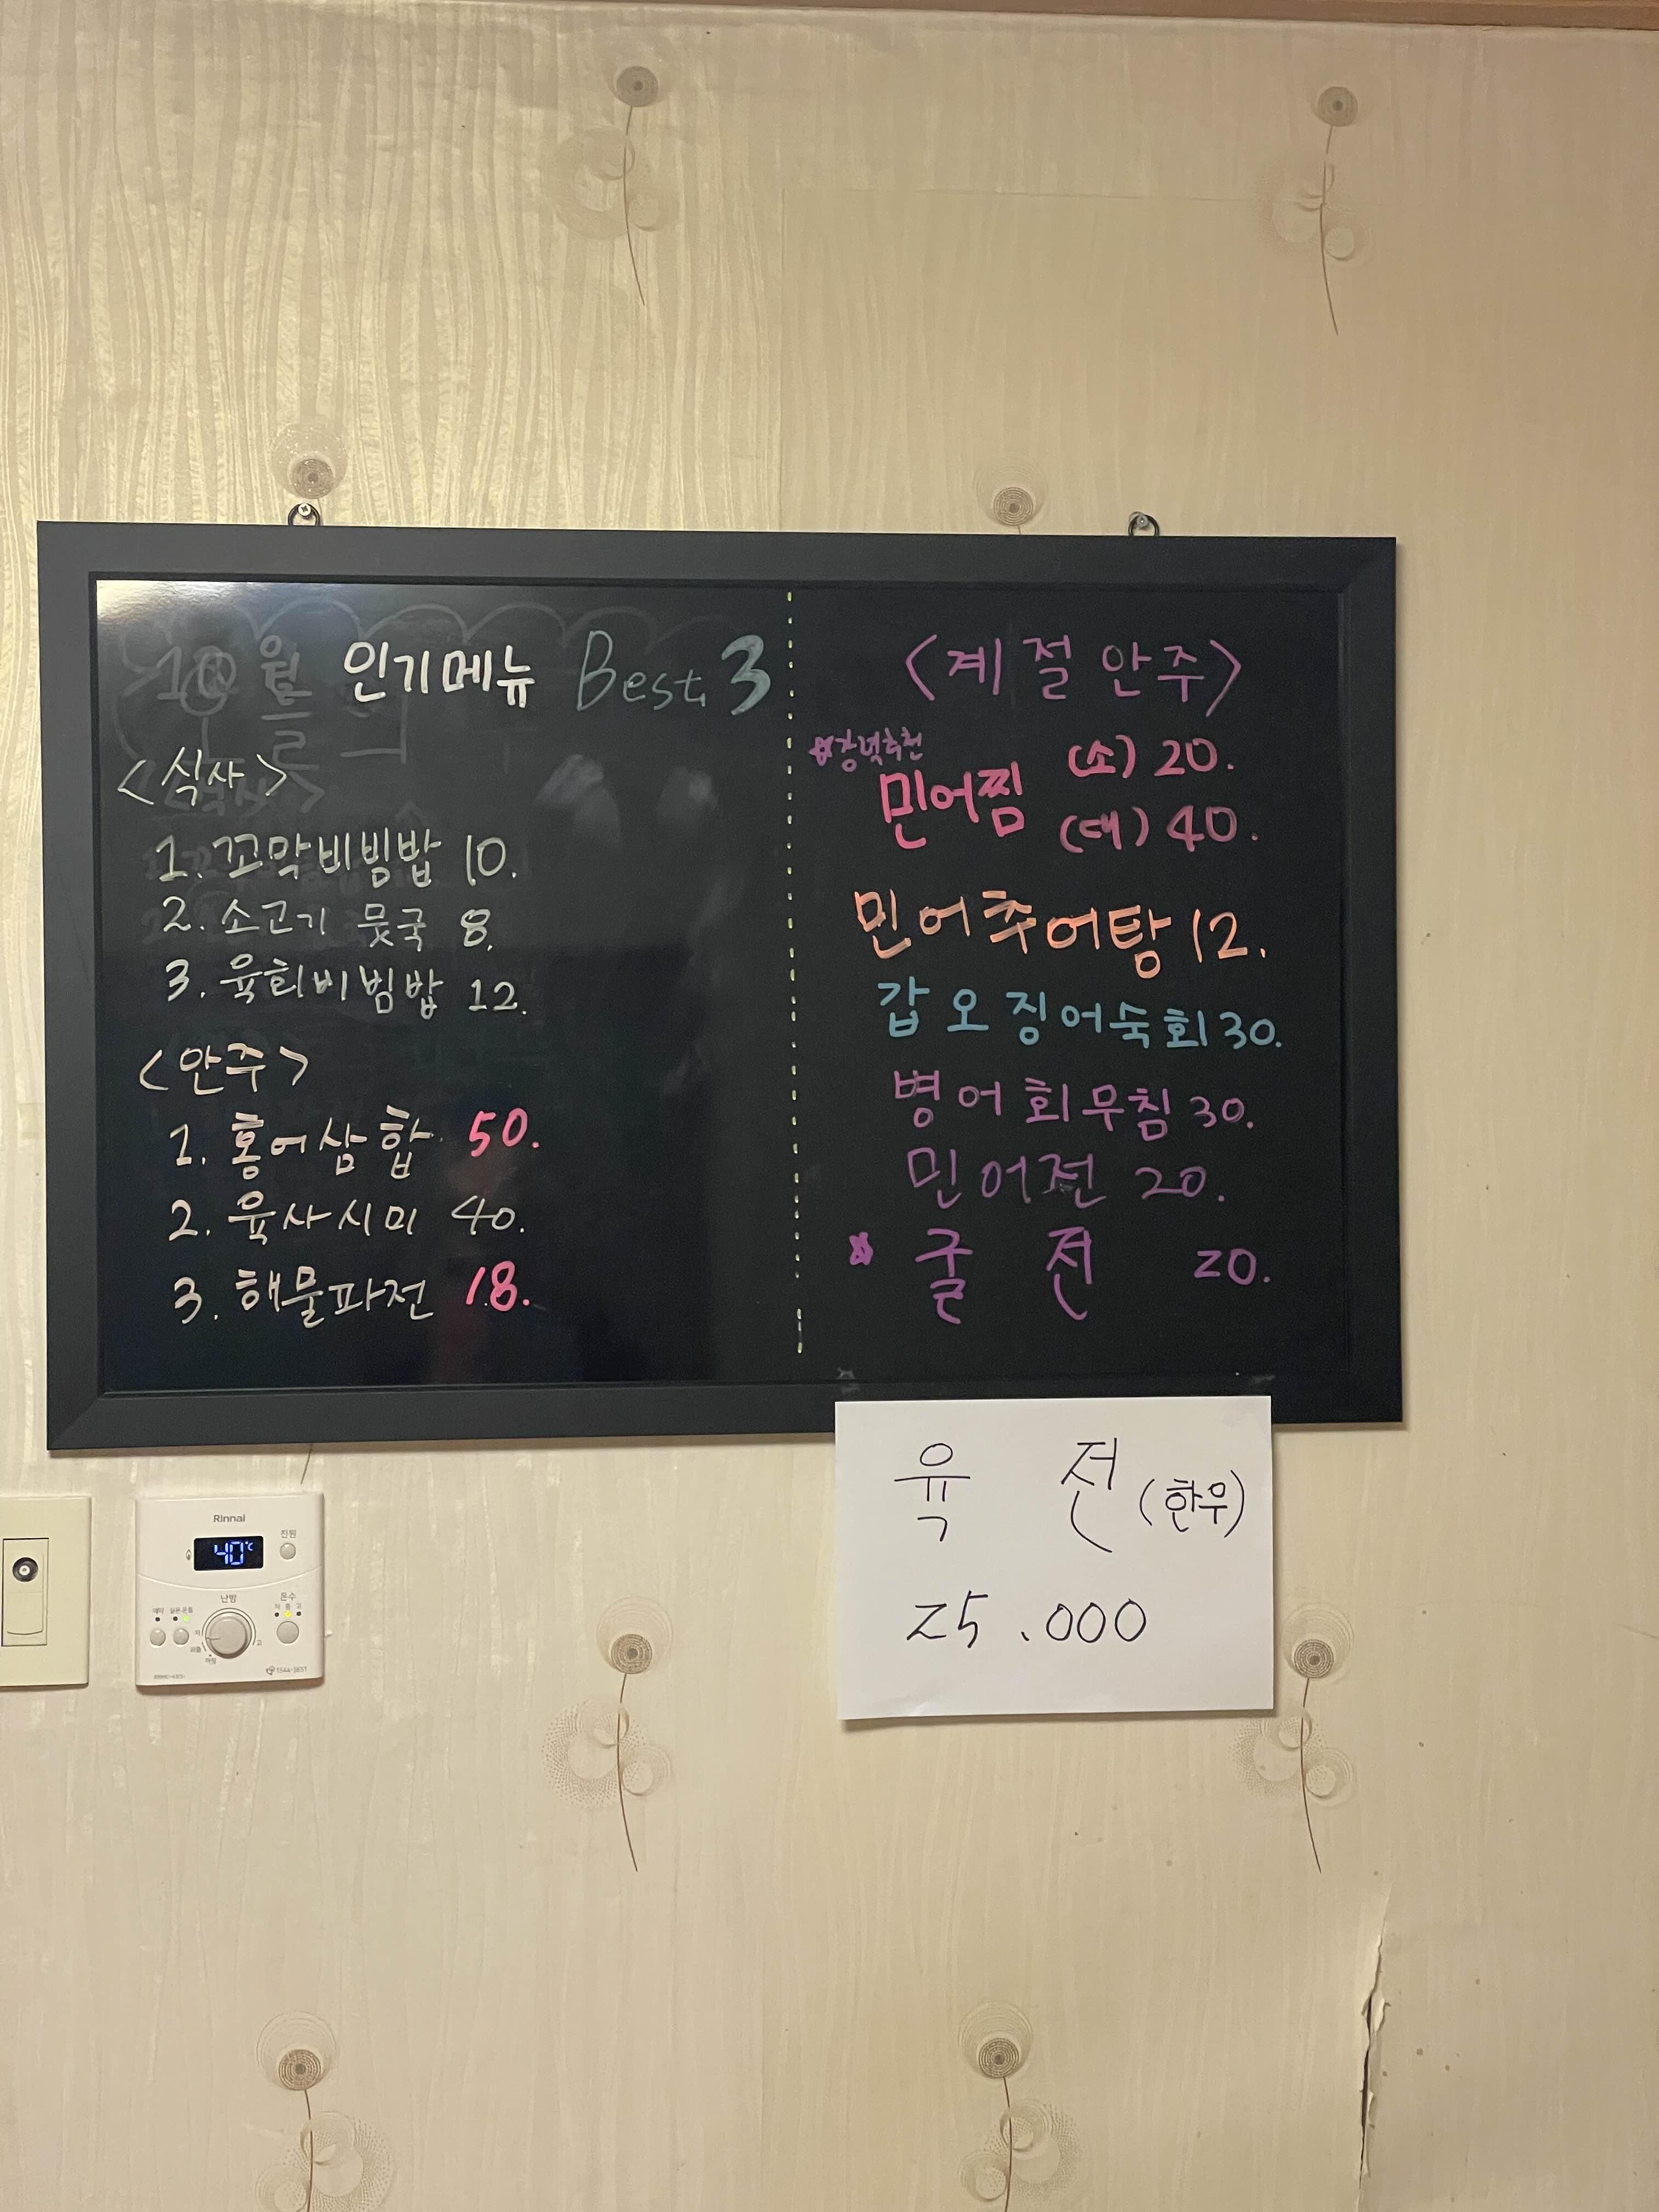 10월 인기메뉴 Best 3
<식사>
1. 꼬막비빔밥 10.
2. 소고기 뭇국 8.
3. 육회비빔밥 12.
<안주>
1. 홍어삼합 50.
2. 육사시미 40.
3. 해물파전 18.
<계절안주>
☆강력추천
민어찜 (소) 20.
(대) 40.
민어추어탕 12.
갑오징어숙회 30.
병어회무침 30.
민어전 20.
☆ 굴전 20.
육전 (한우)
25.000
Rinnai
40℃
전원
난방
온수
예약 실온·온돌
저 중 고
저 고
외출
1544-3651